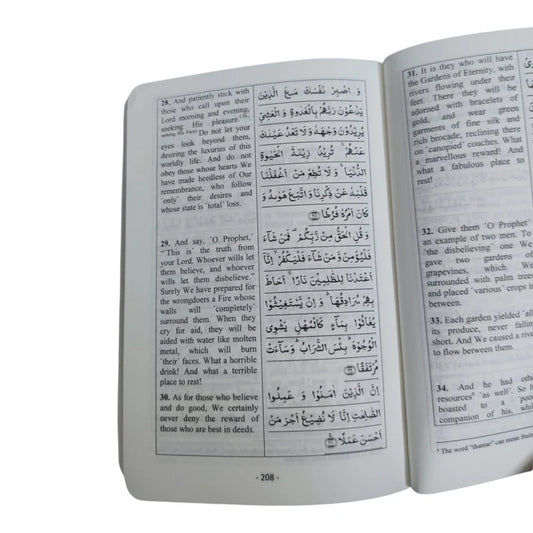 28. And patiently stick with
those who call upon their
Lord morning and evening,
seeking His pleasure.
Do not let your
eyes look beyond them,
desiring the luxuries of this
worldly life. And do not
obey those whose hearts We
have made heedless of Our
remembrance, who follow
‘only’ their desires and
whose state is ‘total’ loss.
وَ اصْبِرْ نَفْسَكَ مَعَ الَّذِيْنَ
يَدْعُوْنَ رَبَّهُمْ بِالْغَدٰوةِ وَ الْعَشِيِّ
يُرِيْدُوْنَ وَجْهَهٗ وَ لَا تَعْدُ عَيْنٰكَ
عَنْهُمْ ۚ تُرِيْدُ زِيْنَةَ الْحَيٰوةِ
الدُّنْيَا ۚ وَ لَا تُطِعْ مَنْ اَغْفَلْنَا
قَلْبَهٗ عَنْ ذِكْرِنَا وَ اتَّبَعَ هَوٰىهُ وَ
كَانَ اَمْرُهٗ فُرُطًا ﴿۲۸﴾
29. And say, ‘O Prophet,’
“‘This is’ the truth from
your Lord. Whoever wills let
them believe, and whoever
wills let them disbelieve.”
Surely We have prepared for
the wrongdoers a Fire whose
walls will ‘completely’
surround them. When they
cry for aid, they will be
aided with water like molten
metal, which will burn
‘their’ faces. What a horrible
drink! And what a terrible
place to rest!
وَ قُلِ الْحَقُّ مِنْ رَّبِّكُمْ ۫ فَمَنْ شَآءَ
فَلْيُؤْمِنْ وَّ مَنْ شَآءَ فَلْيَكْفُرْ ۙ اِنَّاۤ
اَعْتَدْنَا لِلظّٰلِمِيْنَ نَارًا ۙ اَحَاطَ
بِهِمْ سُرَادِقُهَا ؕ وَ اِنْ يَّسْتَغِيْثُوْا
يُغَاثُوْا بِمَآءٍ كَالْمُهْلِ يَشْوِي
الْوُجُوْهَ ؕ بِئْسَ الشَّرَابُ ؕ وَ سَآءَتْ
مُرْتَفَقًا ﴿۲۹﴾
30. As for those who believe
and do good, We certainly
never deny the reward of
those who are best in deeds.
اِنَّ الَّذِيْنَ اٰمَنُوْا وَ عَمِلُوا
الصّٰلِحٰتِ اِنَّا لَا نُضِيْعُ اَجْرَ مَنْ
اَحْسَنَ عَمَلًا ﴿۳۰﴾
- 208 -
31. It is they who will have
the Gardens of Eternity, with
rivers flowing under their
feet. There they will be
adorned with bracelets of
gold, and wear green
garments of fine silk and
rich brocade, reclining there
on ‘canopied’ couches. What
a marvellous reward! And
what a fabulous place to
rest!
32. Give them ‘O Prophet’
an example of two men. To
‘the disbelieving’ one We
gave two gardens of
grapevines, which We
surrounded with palm trees
and placed ‘various’ crops in
between.
33. Each garden yielded ‘all’
its produce, never falling
short. And We caused a river
to flow between them.
34. And he had other
resources⁴ ‘as well’. So
boasted to a ‘poor’
companion of his,
⁴ The word “thamar” can mean